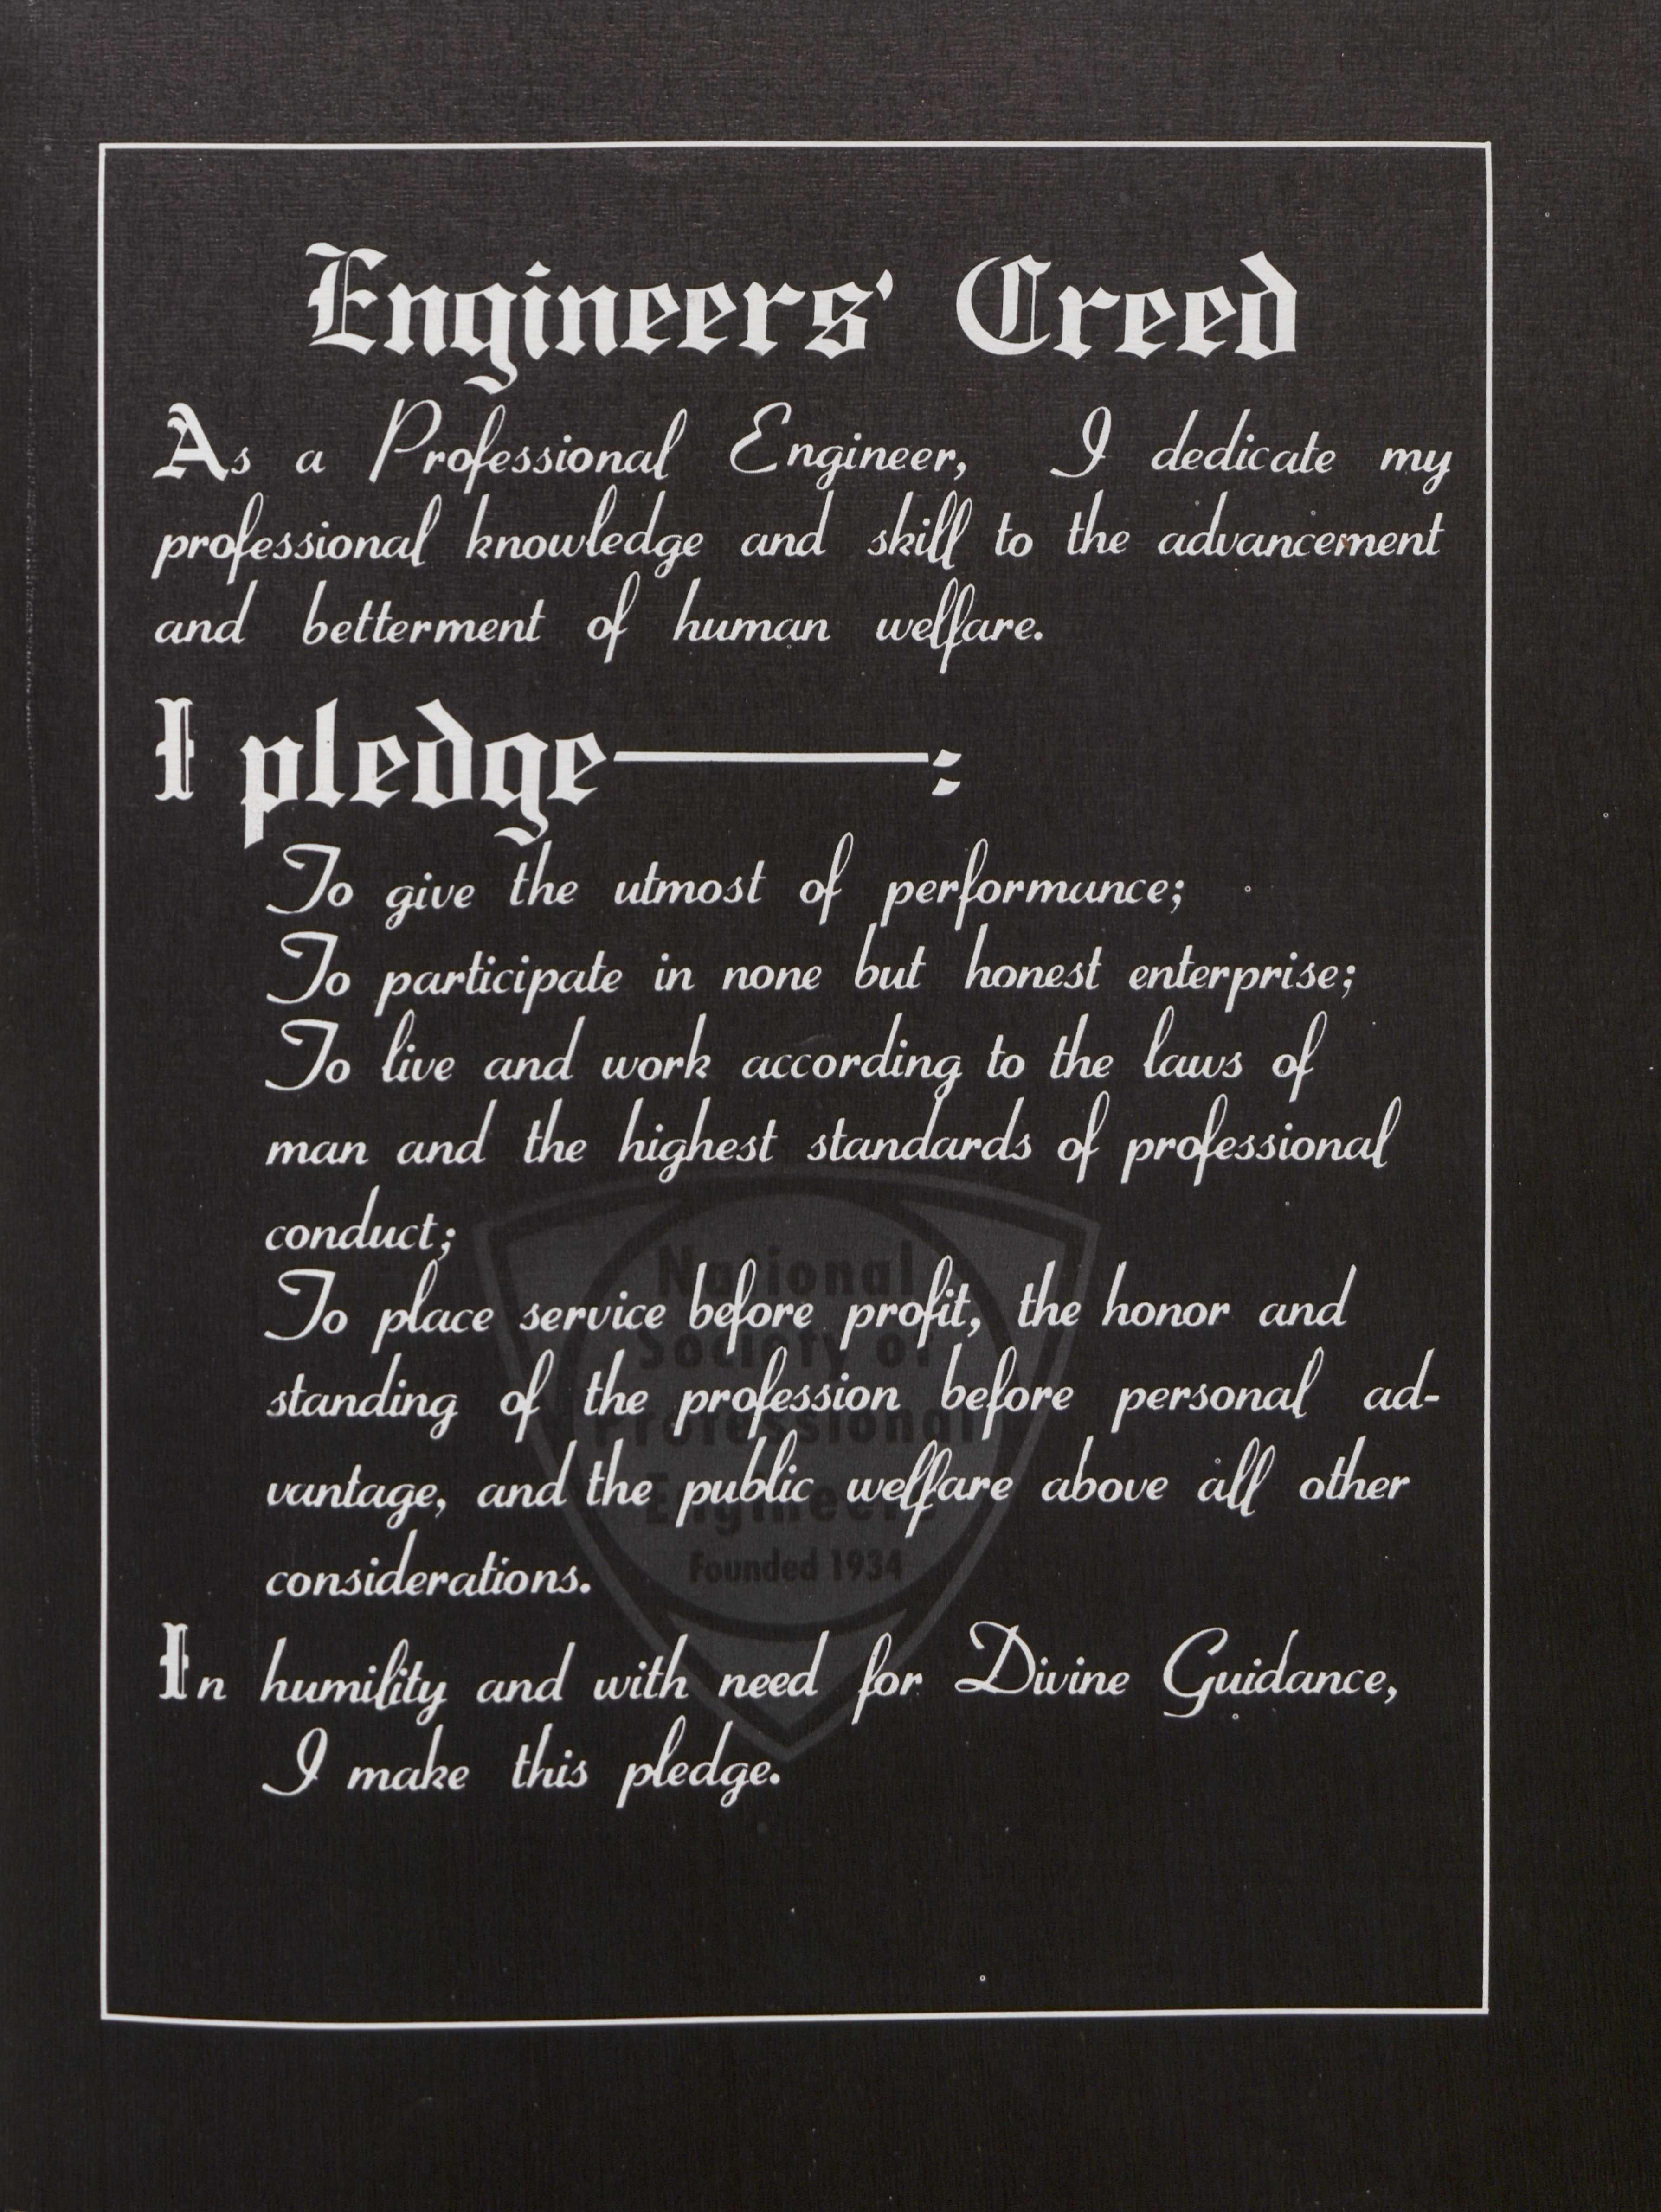 Engineers' Creed
As a Professional Engineer, I dedicate my
professional knowledge and skill to the advancement
and betterment of human welfare.
I pledge———:
To give the utmost of performance;
To participate in none but honest enterprise;
To live and work according to the laws of
man and the highest standards of professional
conduct;
To place service before profit, the honor and
standing of the profession before personal ad-
vantage, and the public welfare above all other
considerations.
In humility and with need for Divine Guidance,
I make this pledge.
National
Society of
Professional
Engineers
Founded 1934